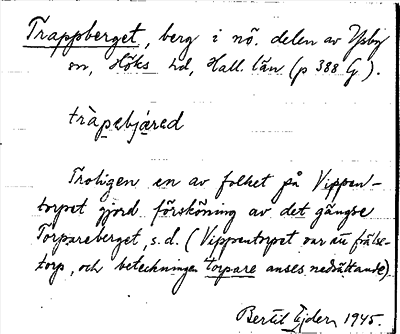 Trappberget, berg i nö. delen av Ysby
sn, Höks hd, Hall. län (p 388 G).
tràpebjæred
Troligen en av folket på Vippen-
torpet gjord försköning av det gängse
Torpareberget, s.d. (Vippentorpet var ett frälse-
torp, och beteckningen torpare anses nedsättande).
Bertil Ejder 1945.